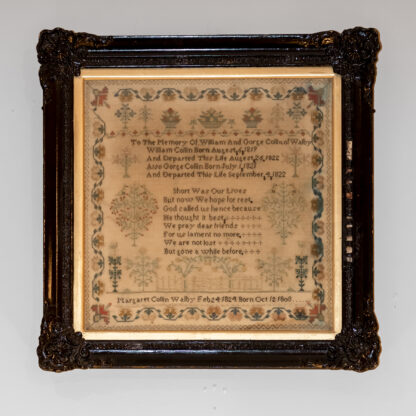 To The Memory Of William And Gorge Collin of Walby
William Collin Born August 6, 1819
And Departed This Life August 28, 1822
Also Gorge Collin Born July 1, 1821
And Departed This Life September 4, 1822
Short Was Our Lives
But now We hope for rest,
God called us hence because
He thought it best,
We pray dear friends
For us lament no more,
We are not lost
But gone a while before,
Margaret Collin Walby Feb 24 1824 Born Oct 12 1808